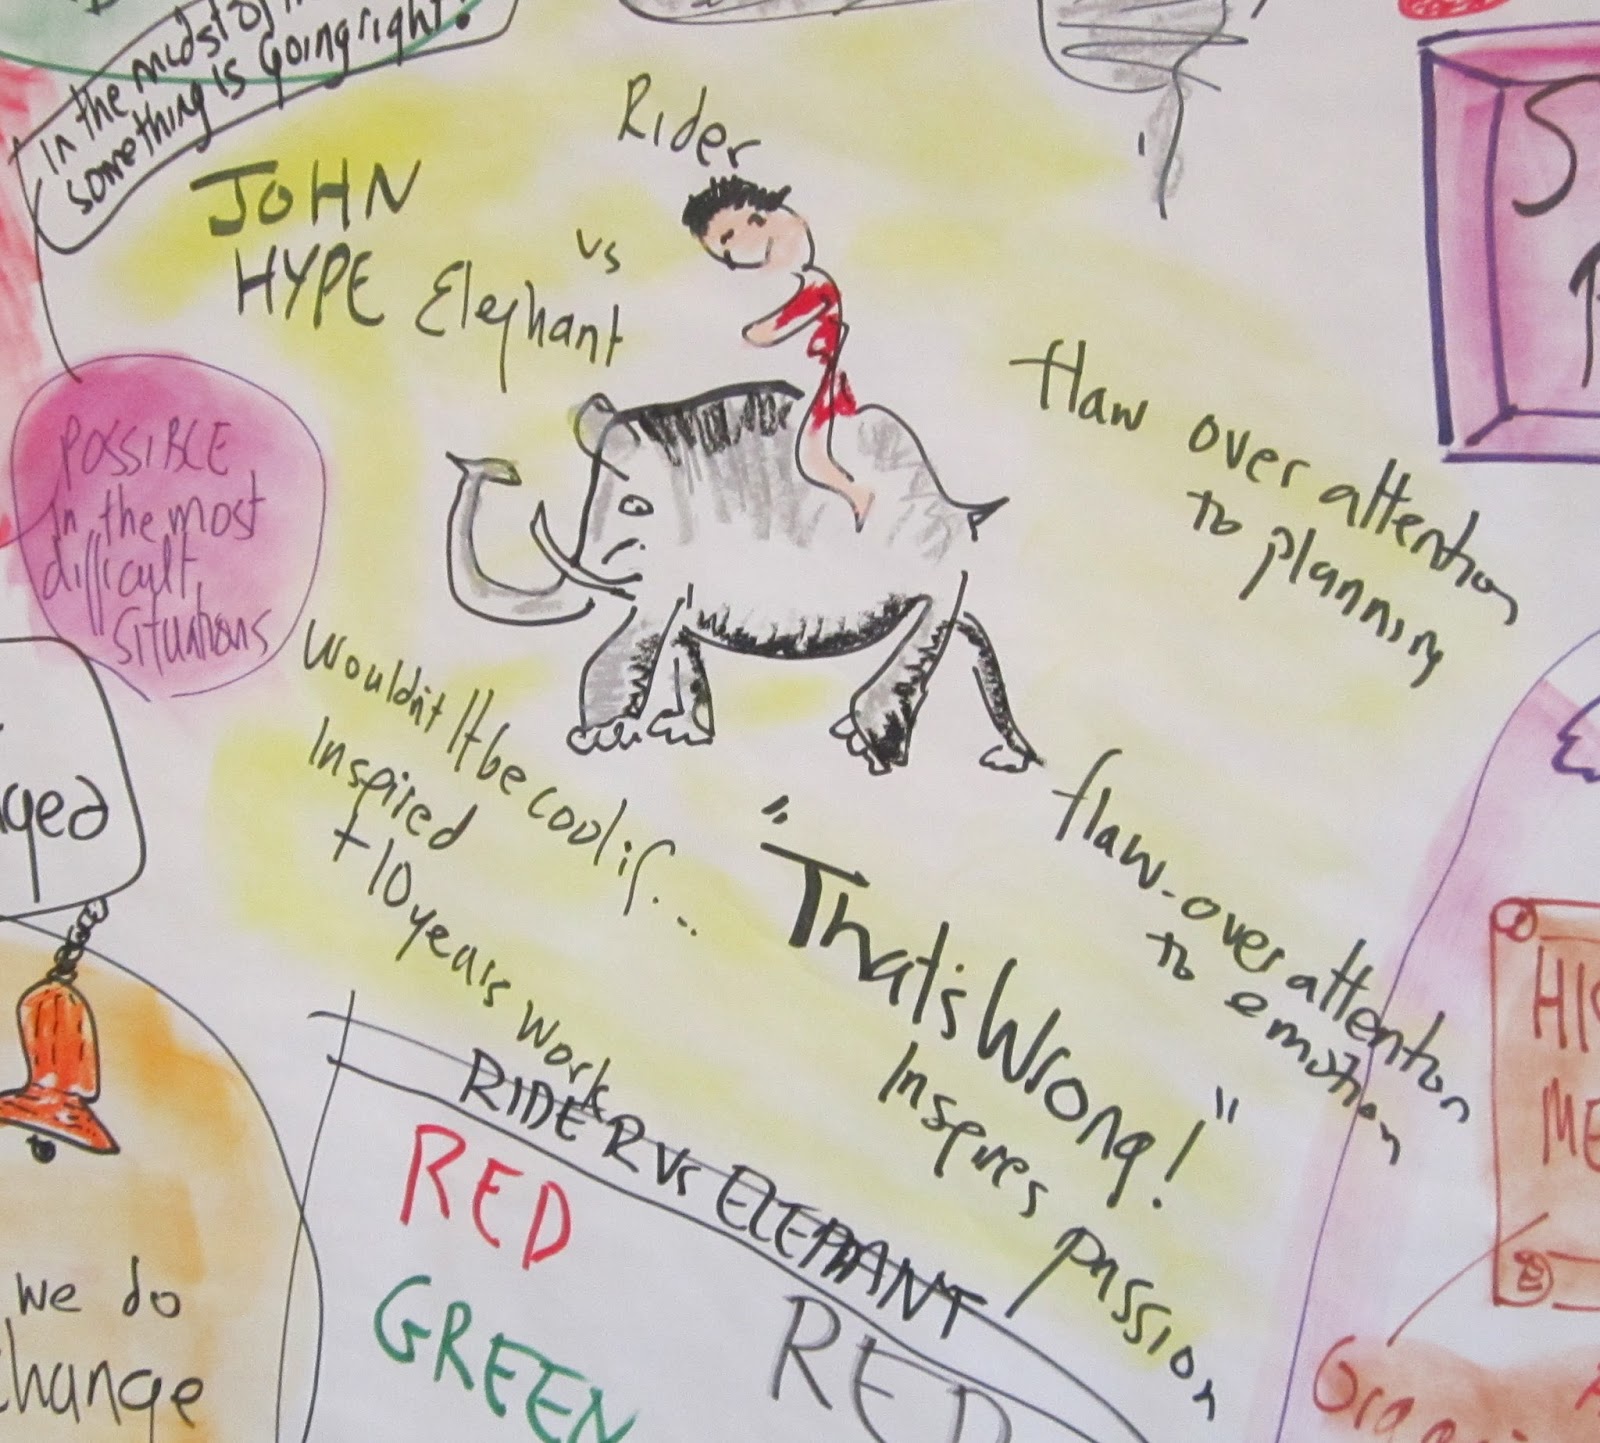 In the midst of
something IS going right!
JOHN
HYPE
Rider
vs
Elephant
flaw over attention
to planning
POSSIBLE
In the most
difficult
situations
Wouldn't It be cool if...
Inspired
+10 years work
flaw-over attention
to emotion
"That's Wrong!"
Inspires passion
RIDER vs ELEPHANT
RED
GREEN
RED
we do
change
HIS
ME